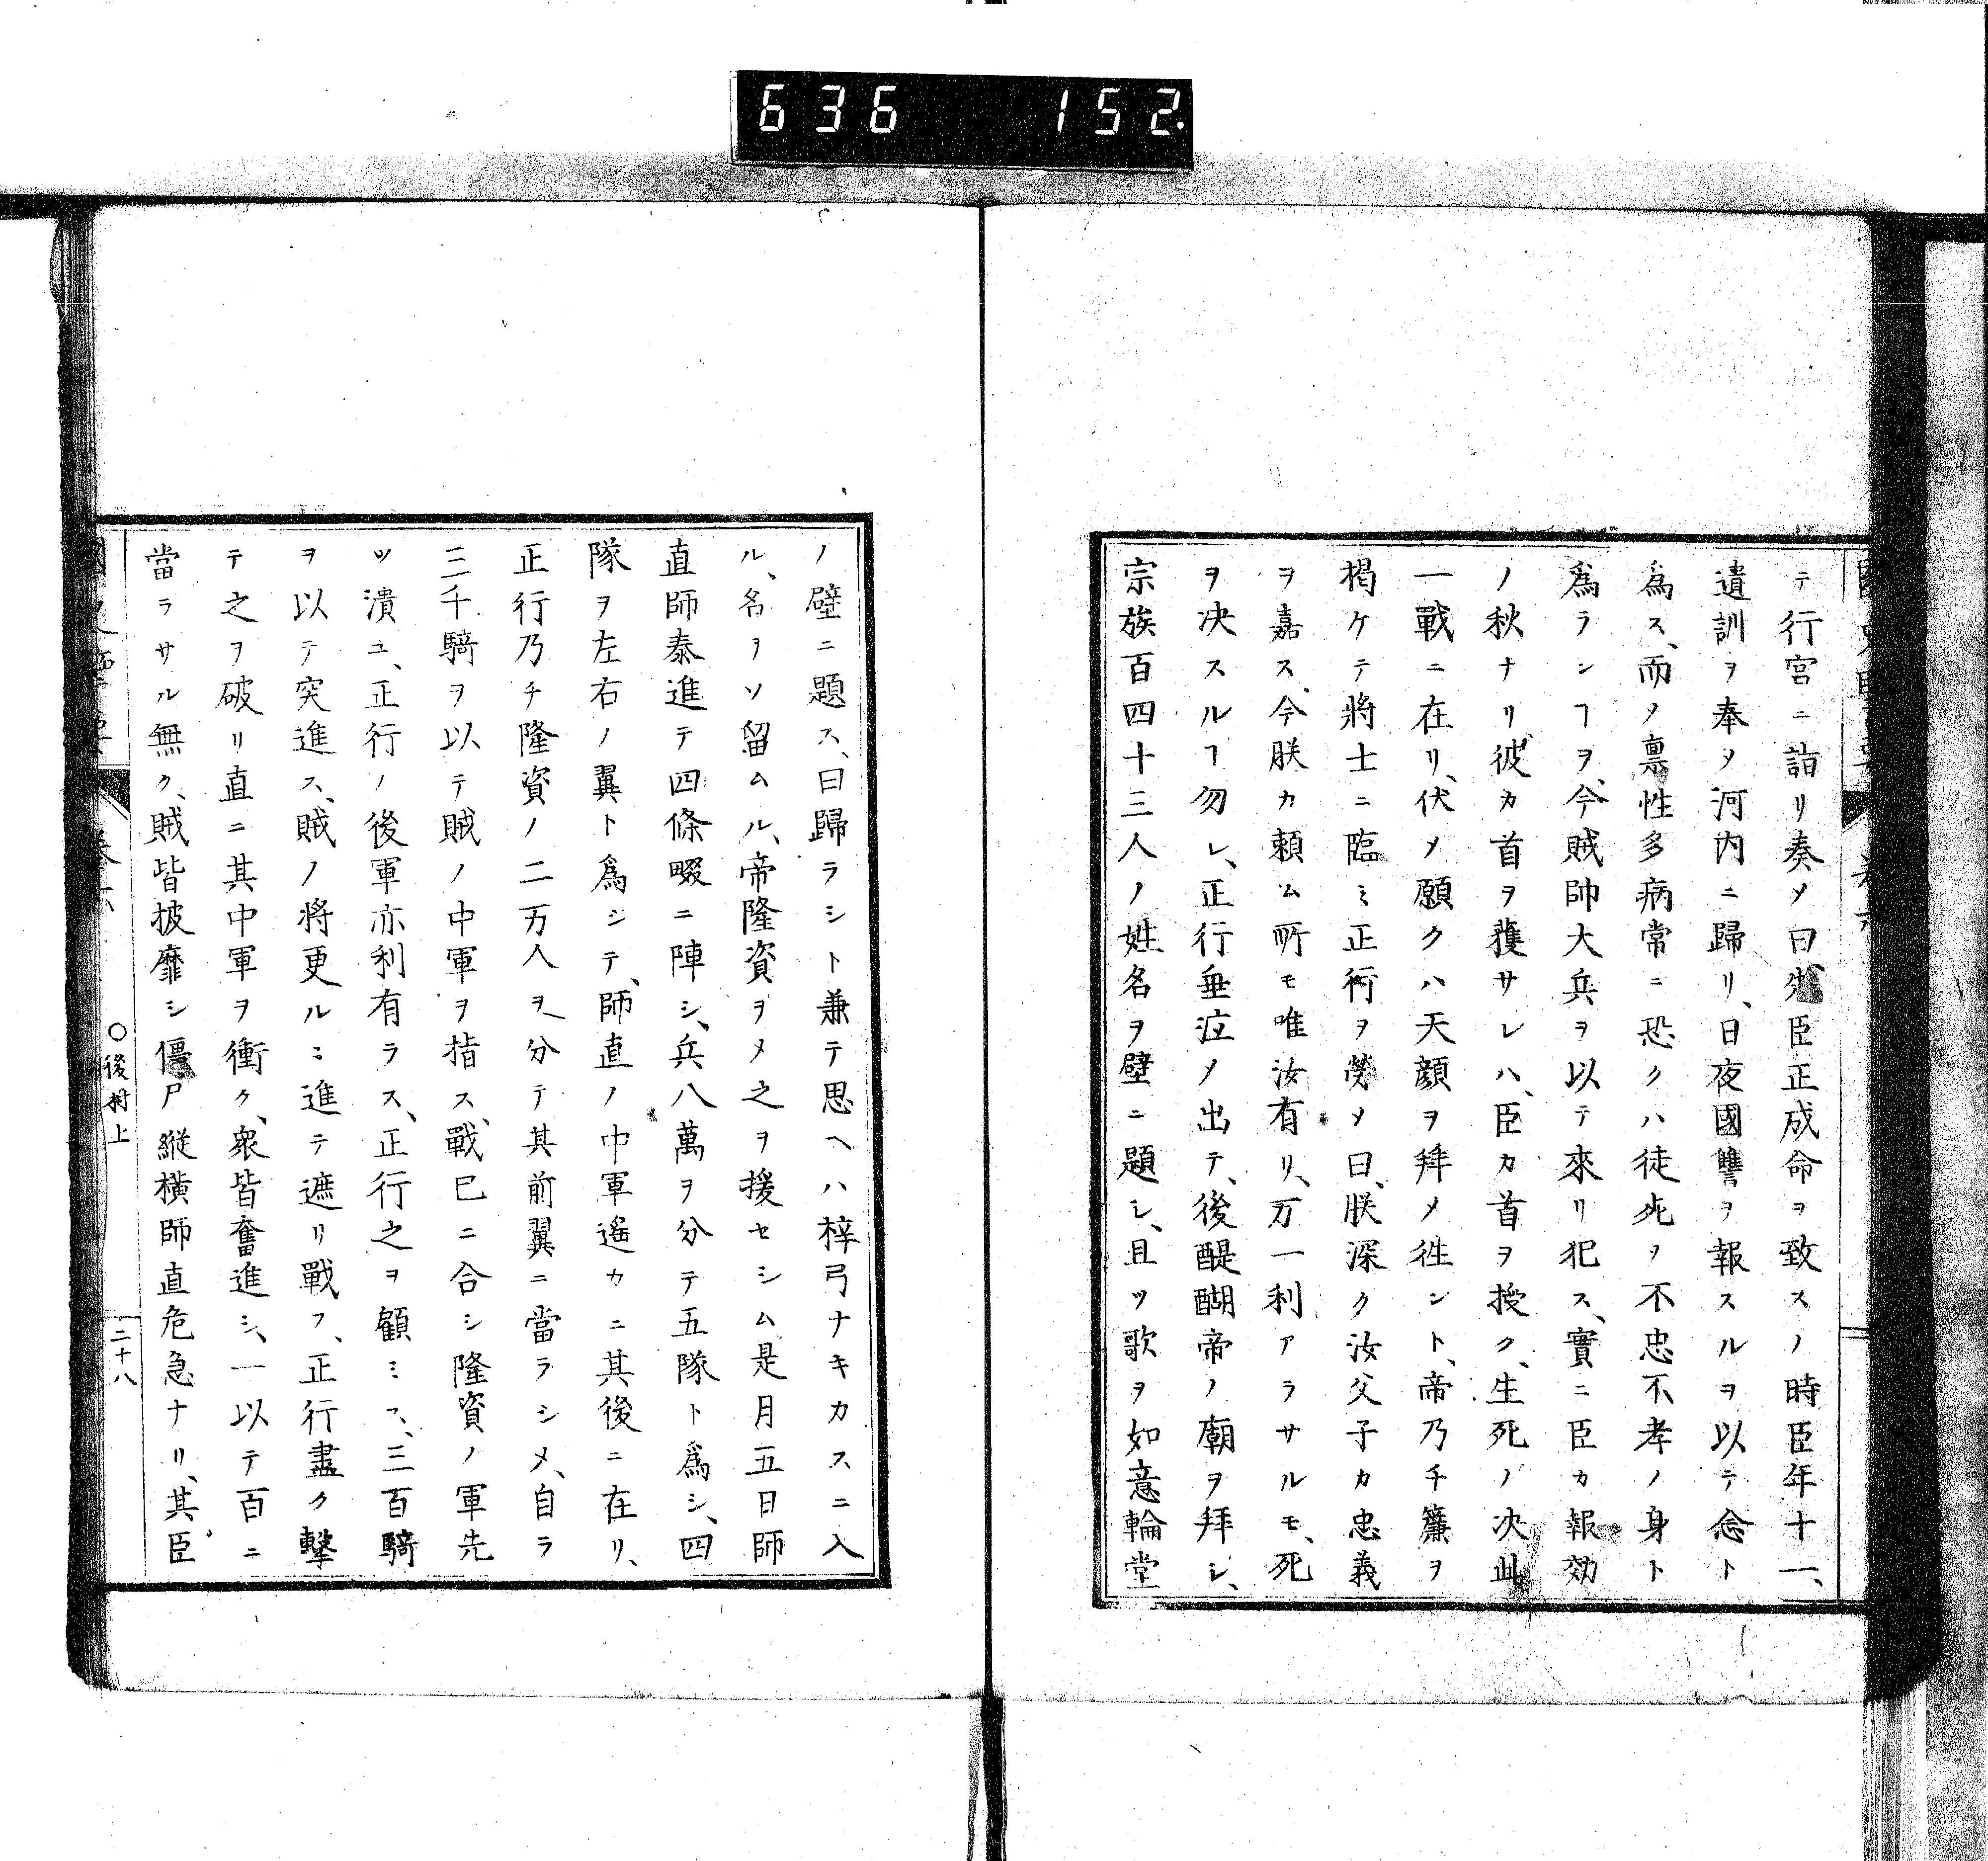 636 152.
テ行宮ニ詣リ奏〆曰、先臣正成命ヲ致スノ時臣年十一、
遺訓ヲ奉〆河内ニ歸リ、日夜國讐ヲ報スルヲ以テ念ト
為ス、而ノ禀性多病常ニ恐クハ徒死ヲ不忠不孝ノ身ト
爲ランヿヲ、今賊帥大兵ヲ以テ來リ犯ス、實ニ臣カ報効
ノ秋ナリ、彼カ首ヲ獲サレハ、臣カ首ヲ授ク、生死ノ决此
一戰ニ在リ、伏〆願クハ天顔ヲ拜〆徃ント、帝乃チ簾ヲ
掲ケテ將士ニ臨ミ正行ヲ勞〆曰、朕深ク汝父子カ忠義
ヲ嘉ス、今朕カ頼ム所モ唯汝有リ、万一利アラサルモ、死
ヲ决スルヿ勿レ、正行垂泣〆出テ、後醍醐帝ノ廟ヲ拜シ、
宗族百四十三人ノ姓名ヲ壁ニ題シ、且ツ歌ヲ如意輪堂
ノ壁ニ題ス、曰歸ラシト兼テ思ヘハ梓弓ナキカスニ入
ル、名ヲソ留ムル、帝隆資ヲ〆之ヲ援セシム是月五日師
直師泰進テ四條畷ニ陣シ、兵八萬ヲ分テ五隊ト爲シ、四
隊ヲ左右ノ翼ト爲シテ、師直ノ中軍遙カニ其後ニ在リ、
正行乃チ隆資ノ二万人ヲ分テ其前翼ニ當ラシメ、自ラ
三千騎ヲ以テ賊ノ中軍ヲ指ス、戰已ニ合シ隆資ノ軍先
ツ潰ユ、正行ノ後軍亦利有ラス、正行之ヲ顧ミス、三百騎
ヲ以テ突進ス、賊ノ將更ルニ進テ遮リ戰フ、正行盡ク擊
テ之ヲ破リ直ニ其中軍ヲ衝ク、衆皆奮進シ、一以テ百ニ
當ラサル無ク、賊皆披靡シ僵尸縱橫師直危急ナリ、其臣
○後村上
二十八